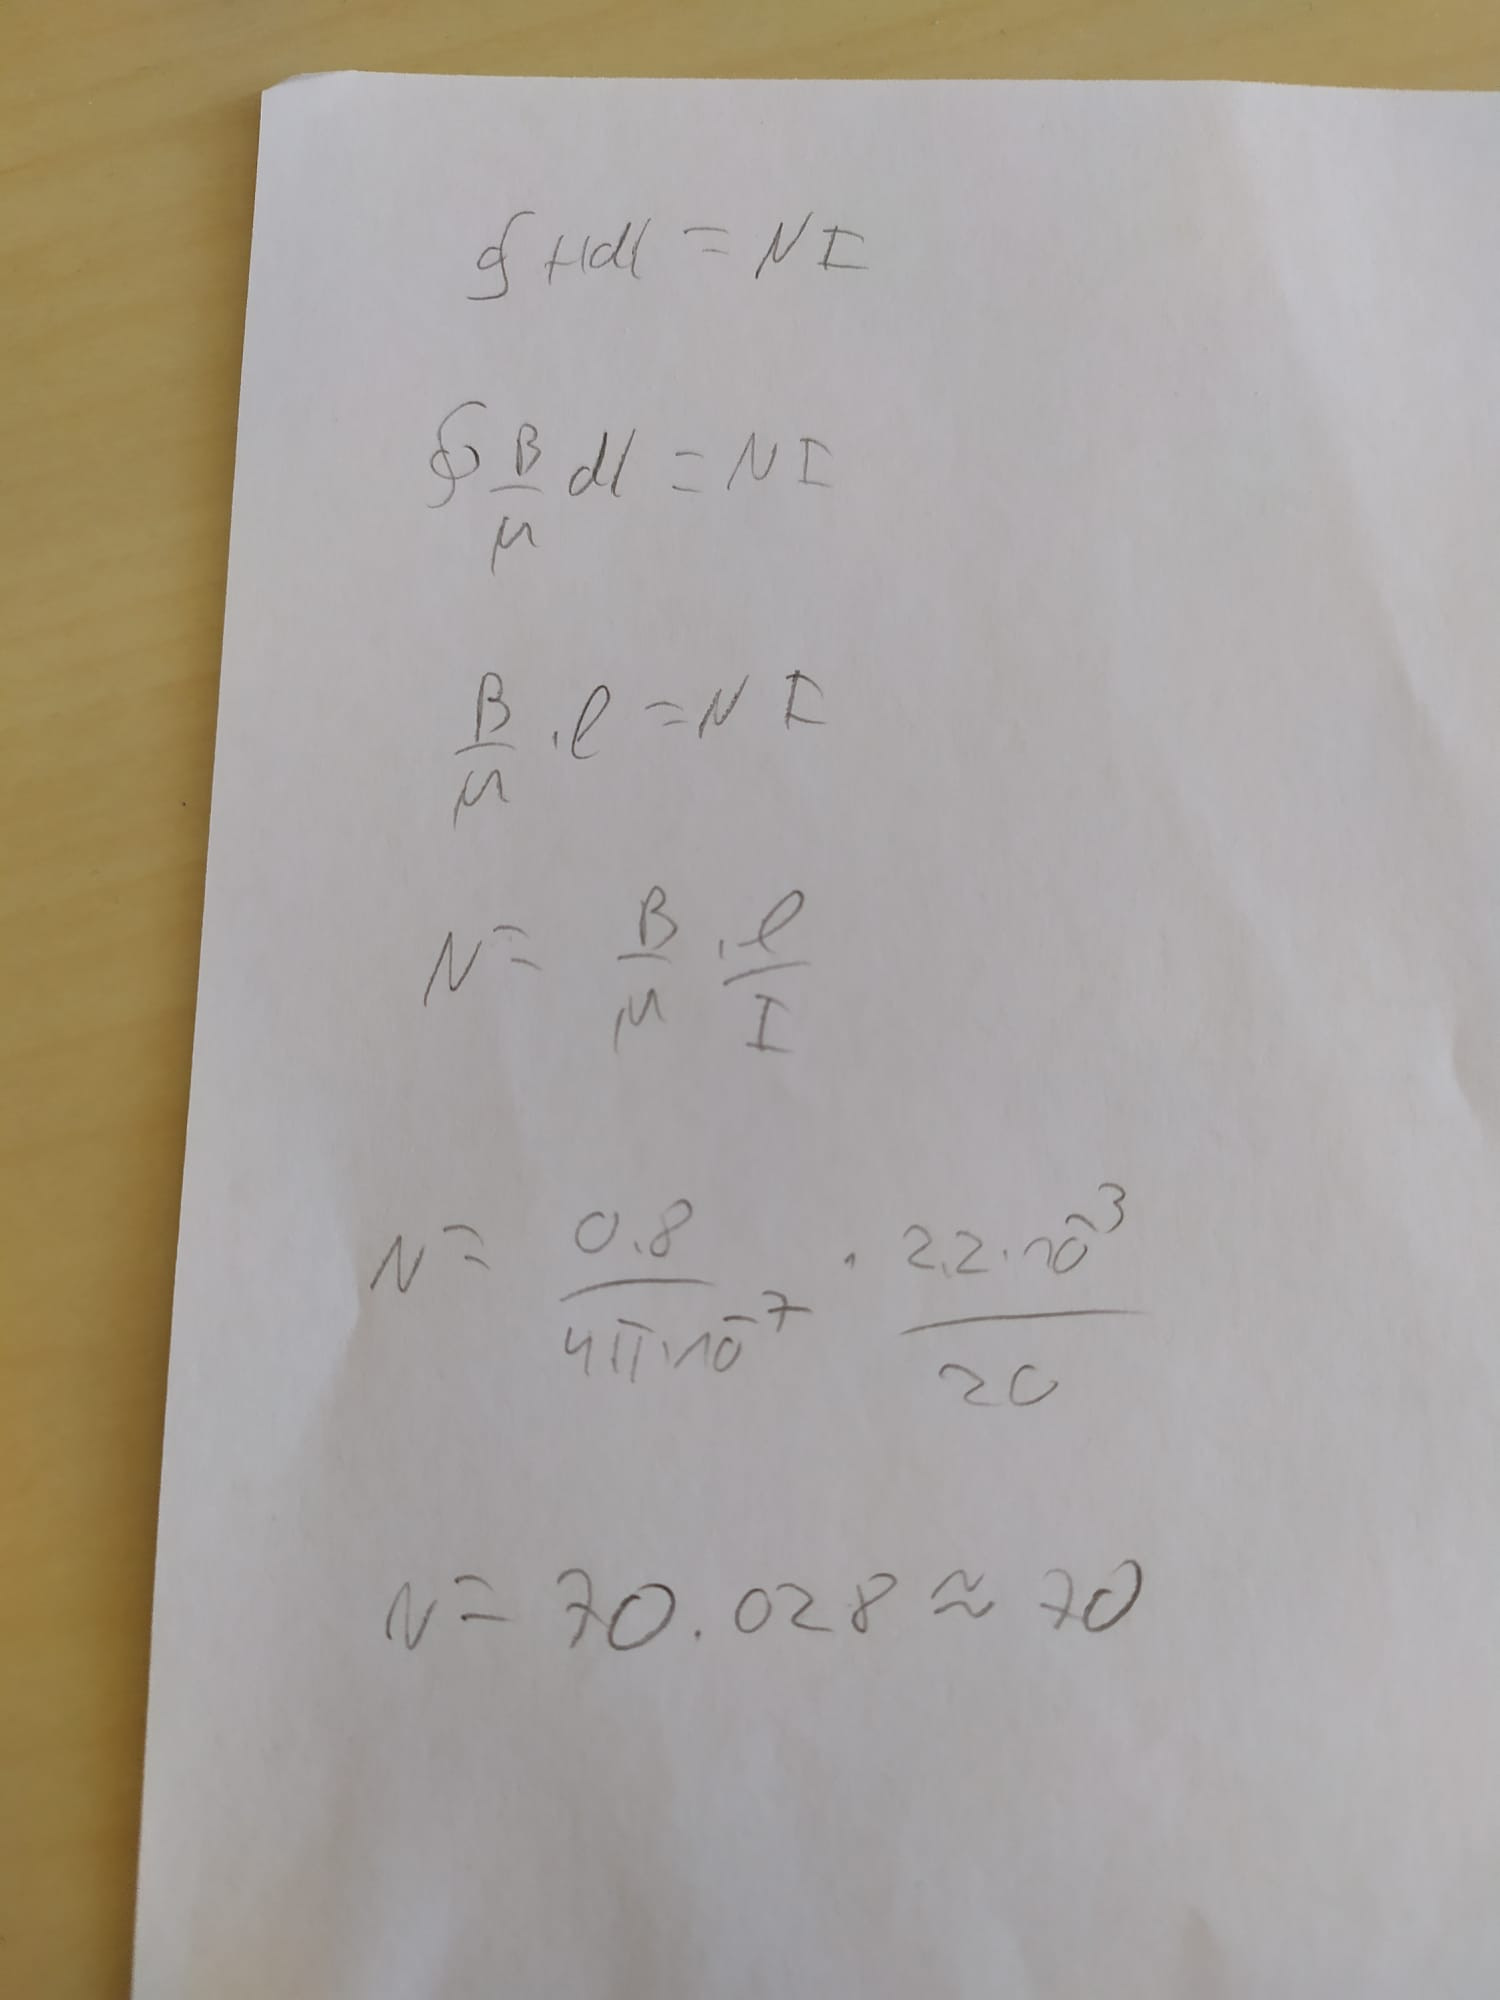 ∮ Hdl = NI
∮ B/μ dl = NI
B/μ . l = NI
N = B/μ . l/I
N = 0.8/4π·10⁻⁷ · 2.2·10⁻³/20
N = 70.028 ≈ 70